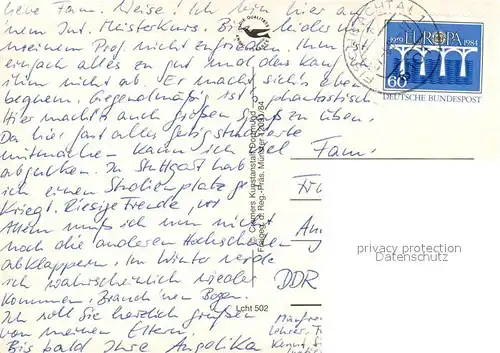 Liebe Fam. Weise! Ich bin hier auf
'nem Int. Meisterkurs. Bin leider mit
meinem Prof nicht zufrieden. Ihm
einfach alles zu gut und kauf
ihm nicht ab. Er macht sich's eben
bequem. Gegendmäßig ist's phantastisch
Hier macht's auch großen Spaß zu üben.
Da hier fast alles fertig studierte
mitmachen kann ich viel
abgucken. In Stuttgart hab
ich einen Studienplatz ge-
kriegt. Riesige Freude, vor
allem muß ich nun nicht
noch die anderen Hochschulen
abklappern. Im Winter werde
ich wahrscheinlich wieder
kommen. Brauch 'nen Bogen.
Ich soll Sie herzlich grüßen
von meinen Eltern.
Bis bald Ihre Angelika
CRAMER QUALITÄT
Cramers Kunstanstalt Dortmund
Freigeg. d. Reg.-Präs. Münster 12093/84
Lcht 502
1959 EUROPA 1984
60
DEUTSCHE BUNDESPOST
Fam.
DDR
privacy protection
Datenschutz
Manfred
Lehrer